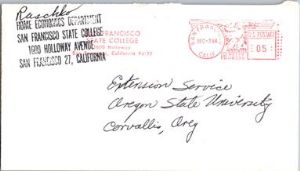 Raschko
HOME ECONOMICS DEPARTMENT
SAN FRANCISCO STATE COLLEGE
1600 HOLLOWAY AVENUE
SAN FRANCISCO 27, CALIFORNIA
FRANCISCO
STATE COLLEGE
Holloway
California
SAN FRANCISCO
CALIF.
U.S. POSTAGE
.05
Extension Service
Oregon State University
Corvallis, Oreg